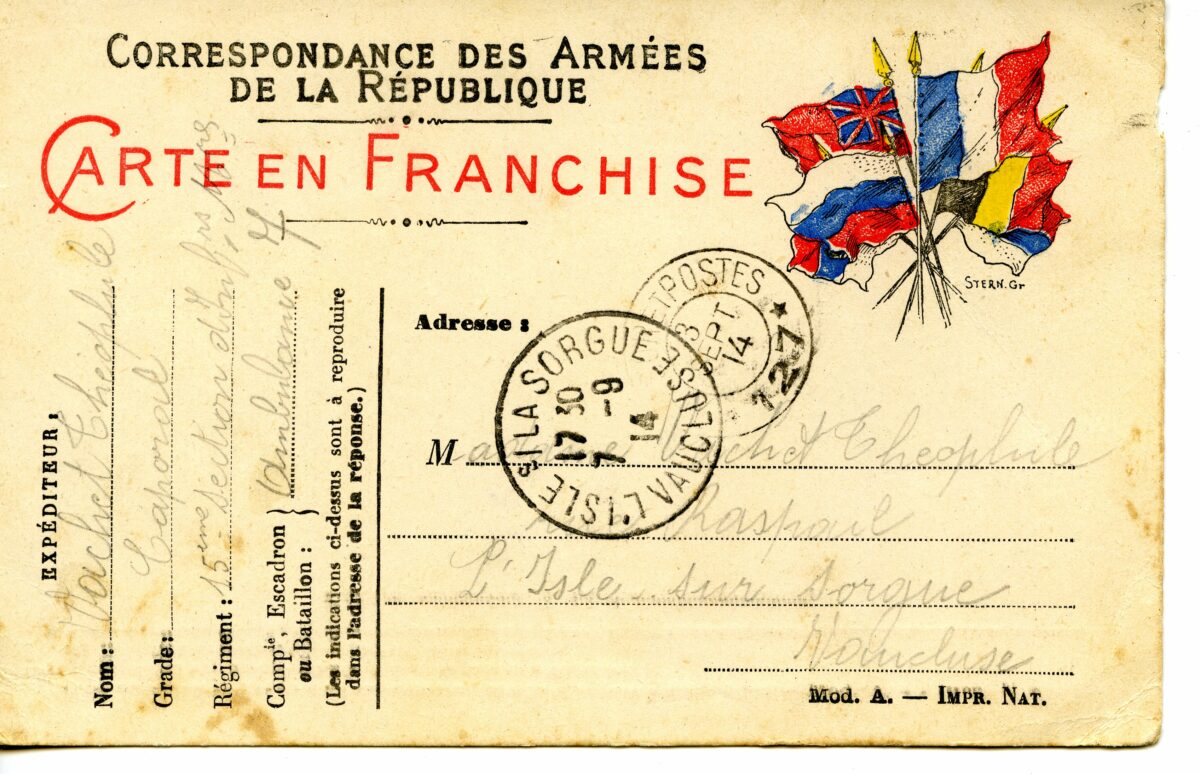 CORRESPONDANCE DES ARMÉES
DE LA RÉPUBLIQUE
CARTE EN FRANCHISE
STERN. Gr
EXPÉDITEUR :
Nom : Vachet Théophile
Grade : Caporal
Régiment : 15ème Section d'Infirs
Compie, Escadron ou Bataillon : Ambulance 7
(Les indications ci-dessus sont à reproduire
dans l'adresse de la réponse.)
Adresse :
ET POSTES * 127
3
SEPT
14
L'ISLE S/ LA SORGUE VAUCLUSE
17 30
7 -9
14
Madame Vachet Théophile
Raspail
L'Isle sur Sorgue
Vaucluse
Mod. A. — IMPR. NAT.